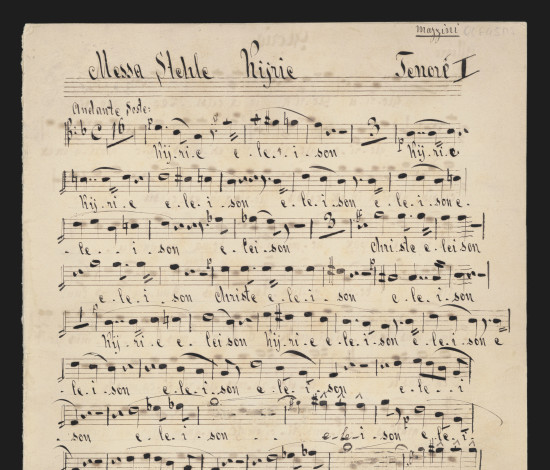 Mazzini
Messa Stehle Kijrie Tenore I
Andante soste:
16 3
Kij-ri-e e-le-i-son Kij-ri-e
Kij-ri-e e-le-i-son e-le-i-son e-le-i-son e-
3
-le-i-son e-leison Christe e-leison
e-le-i-son Christe e-le-i-son e-le-i-son
1
Kij-ri-e e-leison Kij-ri-e e-le-i-son e-le-i-son e
-le-i-son e-le-i-son e-le-i-son e-le-i
-son e-le-i- - - e-le-i-son e-le-i